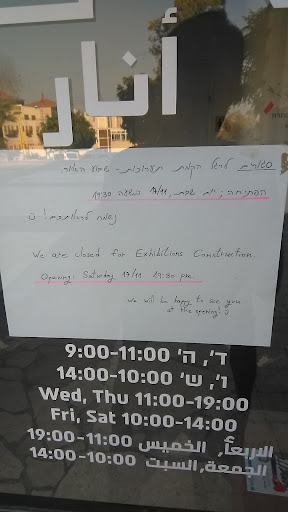 أنار
סגורים לרגל הקמת תערוכות - שימו לב!
הפתיחה: יום שבת, 17/11 בשעה 19:30
נשמח לראותכם! ü
We are closed for Exhibitions Construction.
Opening: Saturday 17/11 19:30 pm.
We will be happy to see you
at the opening! ü
ד', ה' 9:00-11:00
ו', ש' 14:00-10:00
Wed, Thu 11:00-19:00
Fri, Sat 10:00-14:00
الاربعاء, الخميس 11:00-19:00
الجمعة, السبت 10:00-14:00